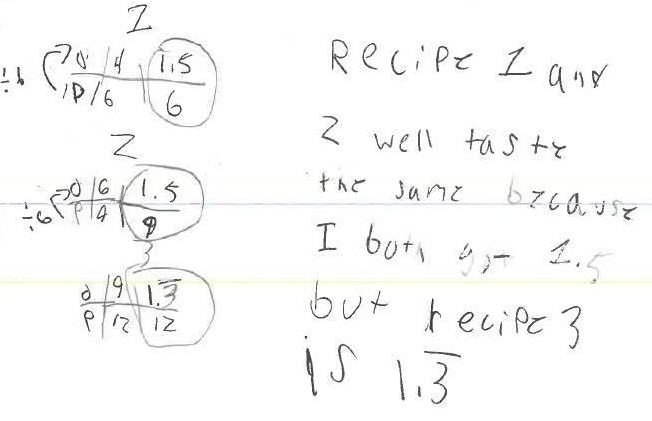 1
÷6 O 4 1.5
P 6 6
2
÷6 O 6 1.5
P 9 9
3
O 9 1.3̅
P 12 12
Recipe 1 and
2 well taste
the same because
I both got 1.5
but recipe 3
is 1.3̅